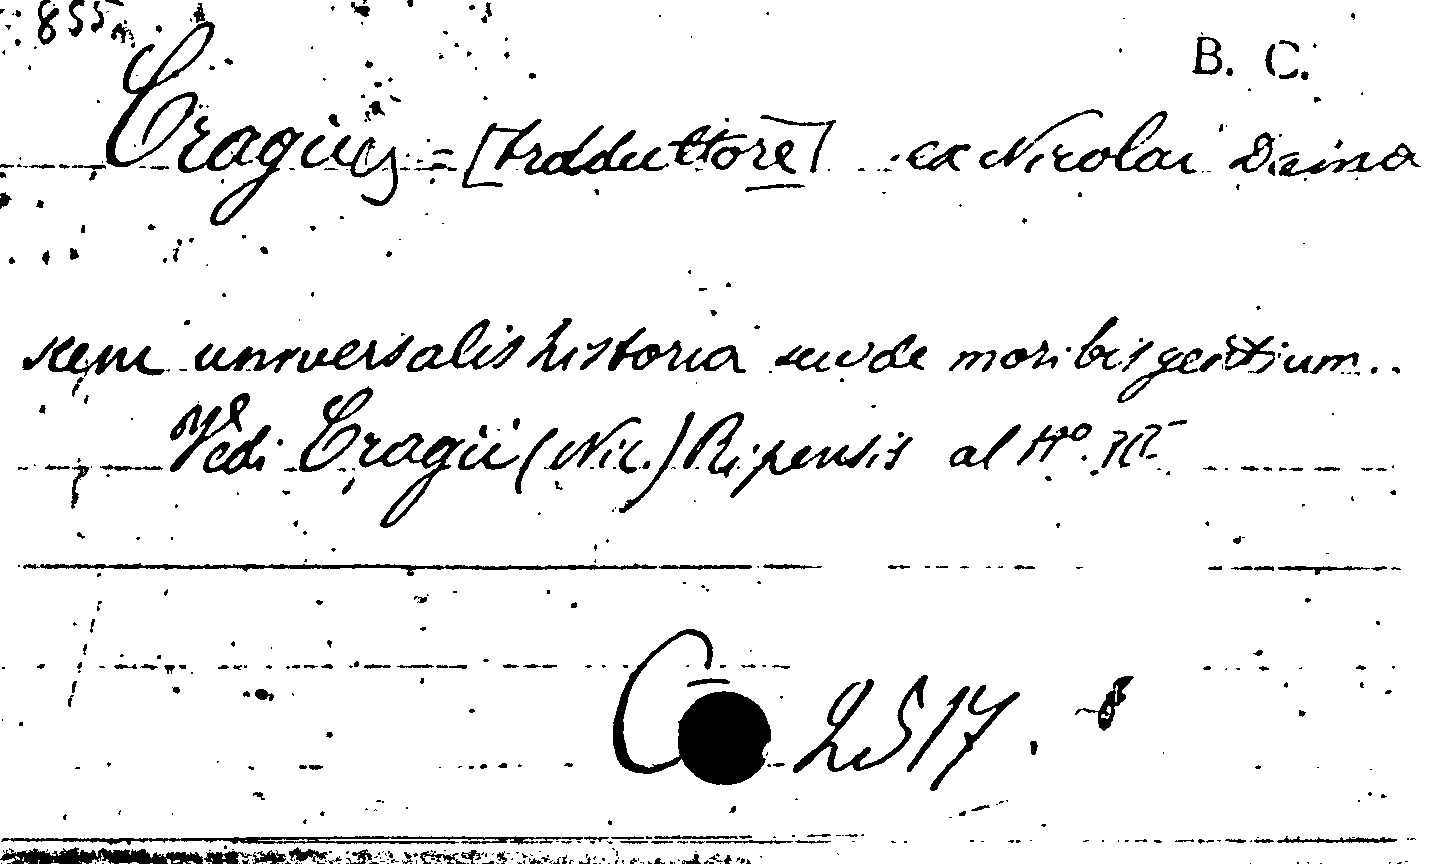 855
B. C.
Cragius = [traduttore] ex Nicolai Dama
sceni universalis historia seu de moribus gentium..
Vedi Cragii (Nic.) Ripensis al
C 2517.